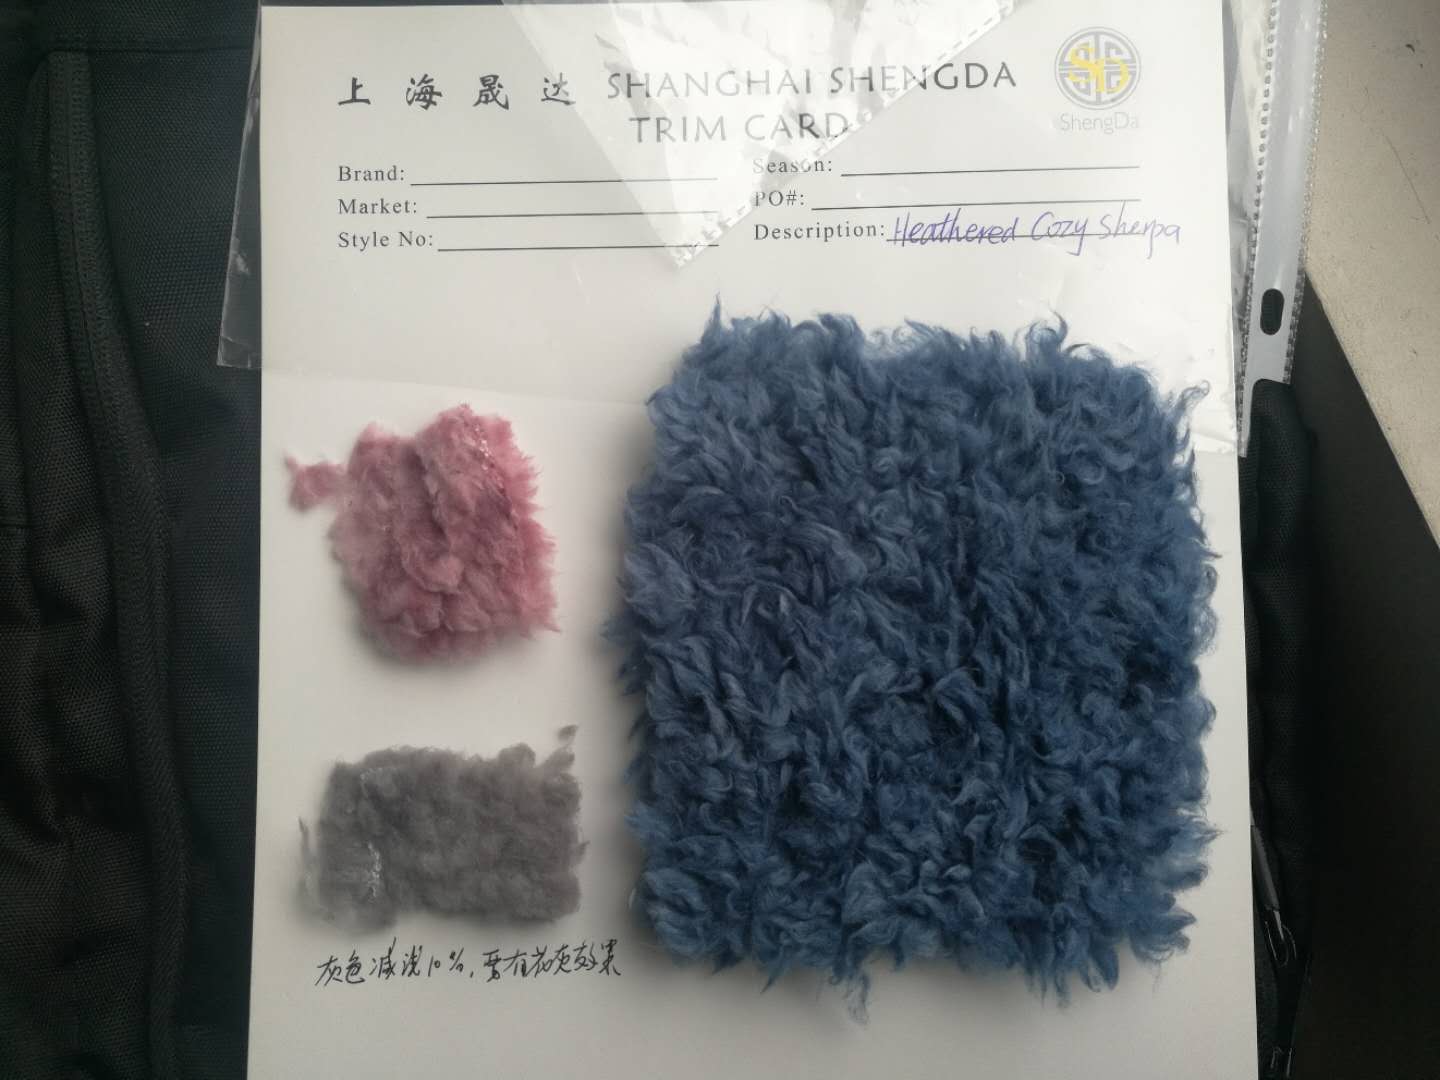 上海晟达 SHANGHAI SHENGDA
TRIM CARD
SD
ShengDa
Brand:
Season:
Market:
PO#:
Style No:
Description: Heathered Cozy Sherpa
灰色减浅10%,要有花灰效果